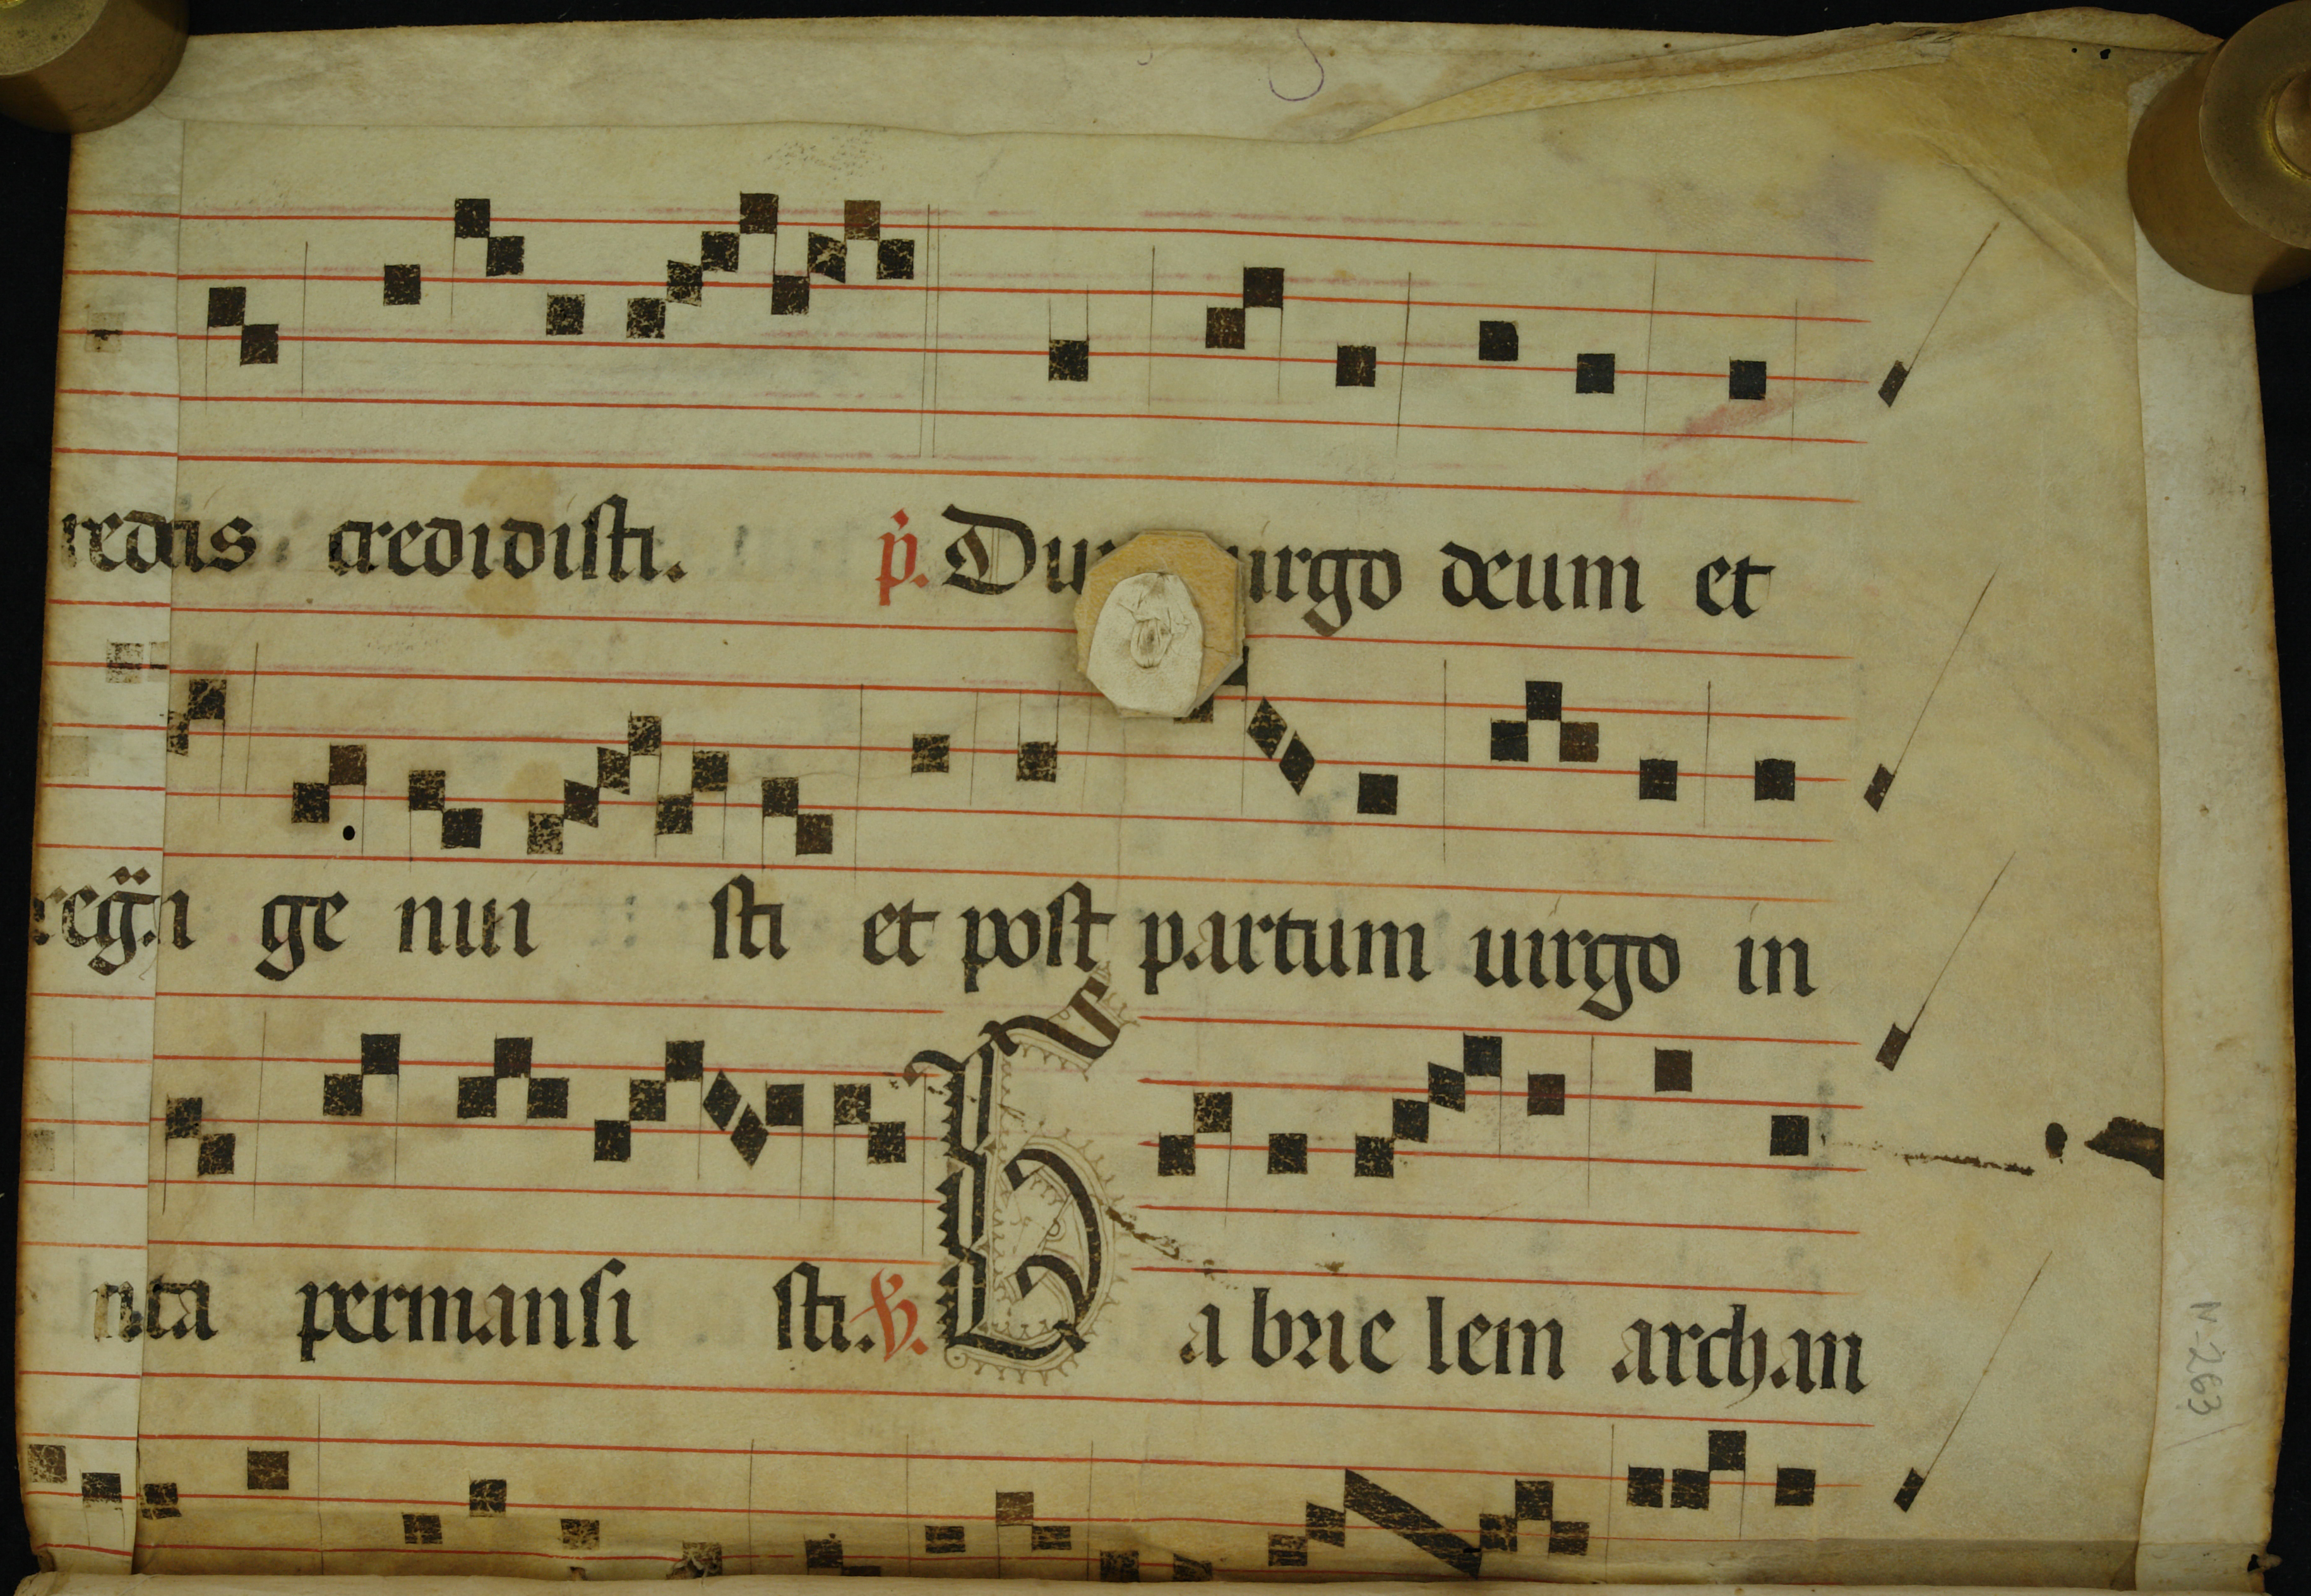 redis credidisti. p. Du uirgo deum et
ge nui sti et post partum uirgo in
uta permansi sti. V. Gabrie lem archan
N-263